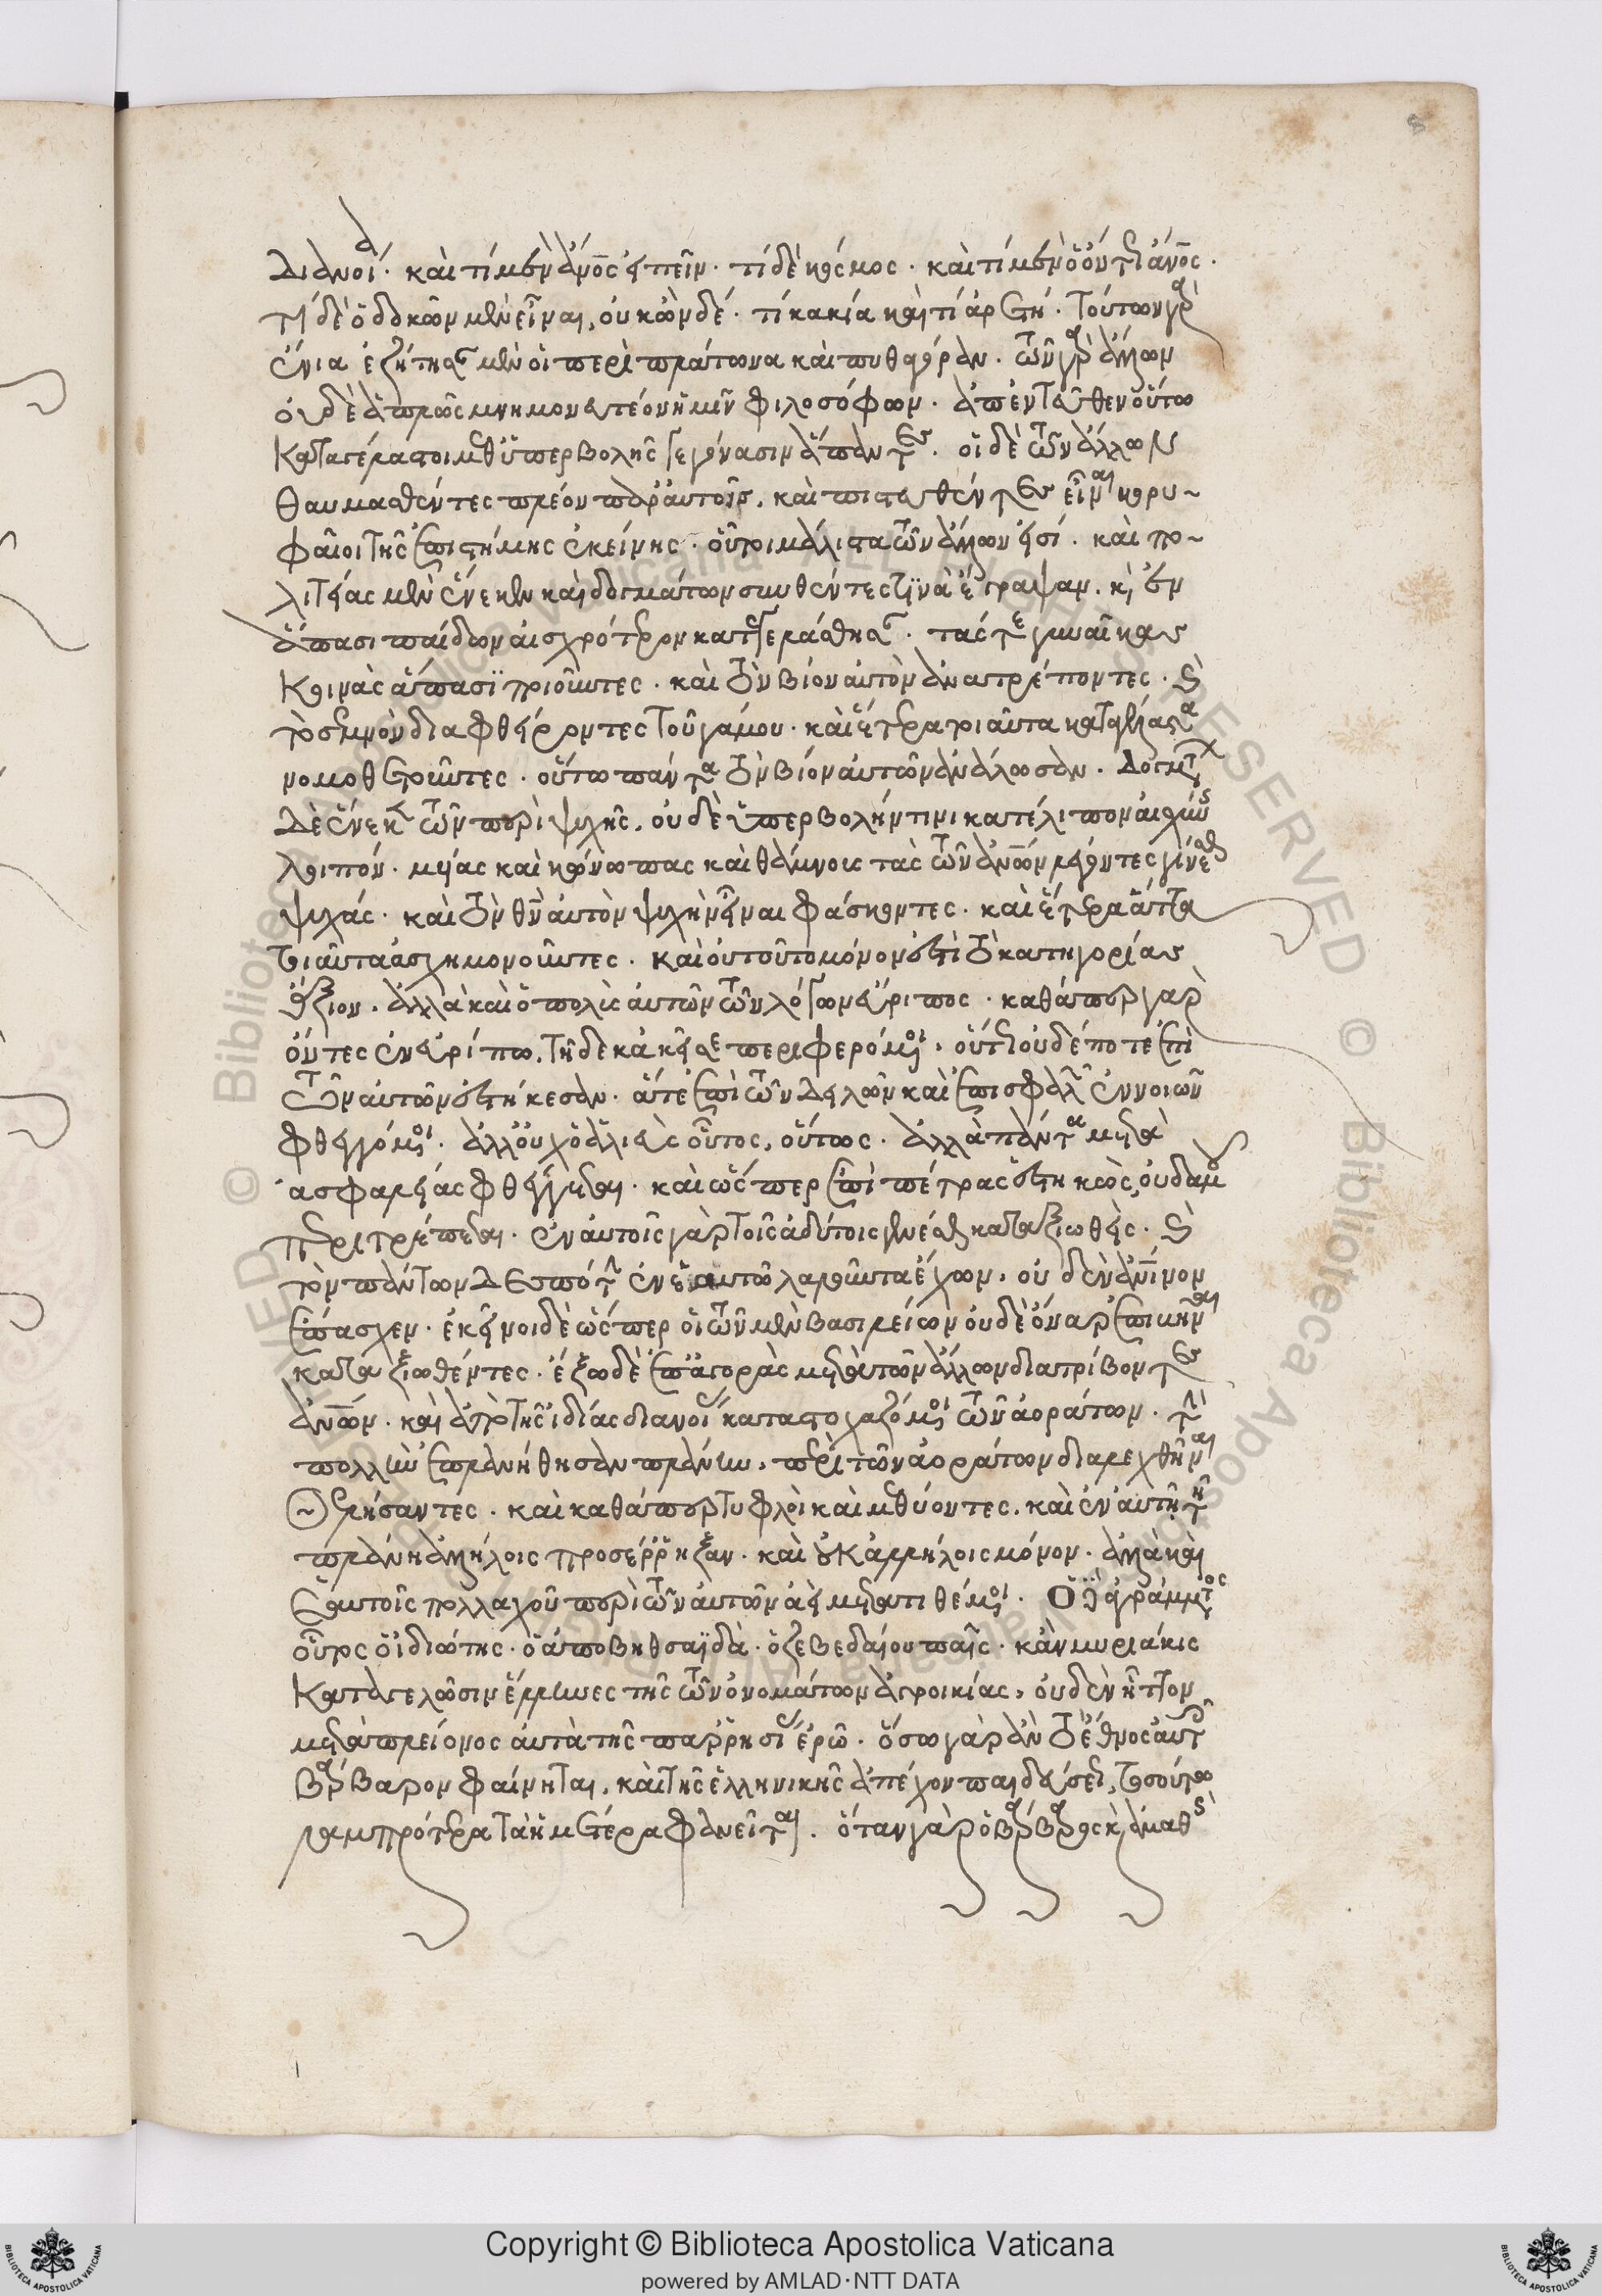 διάνοι· καὶ τί μὲν ἄνος εἰπεῖν· τί δὲ κόσμος· καὶ τί μὲν ὁ ὄντως ἄνος·
τί δὲ ὁ δοκῶν μὲν εἶναι, οὐκ ὢν δέ· τί κακία καὶ τί ἀρετή· Τούτων γὰρ
ἔνια ἐζήτησαν μὲν οἱ περὶ πλάτωνα καὶ πυθαγόραν· τῶν γὰρ ἄλλων
οὐδὲ ἁπλῶς μνημονευτέον ἡμῖν φιλοσόφων· ἀπεντεῦθεν οὕτω
καταγέλαστοι μεθ ὑπερβολῆς γεγόνασιν ἅπαντες· οἱ δὲ τῶν ἄλλων
θαυμασθέντες πλέον παρ αὐτοῖς, καὶ πιστευθέντες εἶναι κορυ~
φαῖοι τῆς ἐπιστήμης ἐκείνης· οὗτοι μάλιστα τῶν ἄλλων εἰσί· καὶ πο~
λιτείας μὲν ἕνεκεν καὶ δογμάτων συνθέντες τινὰ ἔγραψαν· κ ἐν
ἅπασι παίδων αἰσχρότερον κατεγελάσθησαν· τάς τε γυναῖκας
κοινὰς ἅπασι ποιοῦντες· καὶ τὸν βίον αὐτὸν ἀνατρέποντες· κ
τὸ σεμνὸν διαφθείροντες τοῦ γάμου· καὶ ἕτερα τοιαῦτα καταγέλαστα
νομοθετοῦντες· οὕτω πάντα τὸν βίον αὐτῶν ἀνάλωσαν· Δογμάτων
δὲ ἕνεκεν τῶν περὶ ψυχῆς, οὐδὲ ὑπερβολήν τινι κατέλιπον αἰσχύνης
λοιπόν· μυίας καὶ κώνωπας καὶ θάμνους τὰς τῶν ἀνων λέγοντες γίνεσθαι
ψυχάς· καὶ τὸν θν αὐτὸν ψυχὴν εἶναι φάσκοντες· καὶ ἕτερα ἄττα
τοιαῦτα ἀσχημονοῦντες· καὶ οὐ τοῦτο μόνον ἐστὶ τὸ κατηγορίας
ἄξιον· ἀλλὰ καὶ ὁ πολὺς αὐτῶν τῶν λόγων εὔριπος· καθάπερ γὰρ
ὄντες ἐν εὐρίπω, τῇδε κἀκεῖσε περιφερόμενοι, οὕτως οὐδέποτε ἐπὶ
τῶν αὐτῶν ἑστήκεσαν· ἅτε ἐπὶ τῶν δειλῶν καὶ ἐπισφαλῶν ἐννοιῶν
φθεγγόμενοι· ἀλλ οὐχ ὁ ἁλιεὺς οὗτος, οὕτως· ἀλλὰ πάντα μετὰ
ἀσφαλείας φθέγγεται· καὶ ὥσπερ ἐπὶ πέτρας ἑστηκὼς, οὐδαμοῦ
περιτρέπεται· ἐν αὐτοῖς γὰρ τοῖς ἀδύτοις γενέσθαι καταξιωθεὶς· κ
τὸν πάντων δεσπότην ἐν ἑαυτῶ λαλοῦντα ἔχων, οὐδὲν ἀνινον
ἔπασχεν· ἐκεῖνοι δὲ ὥσπερ οἱ τῶν μὲν βασιλείων οὐδὲ ὄναρ ἐπιβῆναι
καταξιωθέντες· ἔξω δὲ ἐπ ἀγορὰς μετὰ τῶν ἄλλων διατρίβοντες
ἀνων· καὶ ἀπὸ τῆς ἰδίας διανοίας καταστοχαζόμενοι τῶν ἀοράτων· τὴν
πολλὴν ἐπλανήθησαν πλάνην, περὶ τῶν ἀοράτων διαλεχθῆναι
θελήσαντες· καὶ καθάπερ τυφλοὶ καὶ μεθύοντες, καὶ ἐν αὐτῇ τῇ
πλάνη ἀλλήλοις προσέρρηξαν· καὶ οὐκ ἀλλήλοις μόνον· ἀλλὰ καὶ
ἑαυτοῖς πολλαχοῦ περὶ τῶν αὐτῶν ἀεὶ μετατιθέμενοι· Ὁ δὲ ἀγράμματος
οὗτος ὁ ἰδιώτης· ὁ ἀπὸ βηθσαϊδὰ· ὁ ζεβεδαίου παῖς· κἂν μυριάκις
καταγελῶσιν ἕλληνες τῆς τῶν ὀνομάτων ἀγροικίας, οὐδὲν ἧττον
μετὰ πλείονος αὐτὰ τῆς παρρησίας ἐρῶ· ὅσω γὰρ ἂν τὸ ἔθνος αὐτοῖς
βάρβαρον φαίνηται, καὶ τῆς ἑλληνικῆς ἀπέχον παιδεύσεως, τοσούτω
λαμπρότερα τὰ ἡμέτερα φανεῖται· ὅταν γὰρ ὁ βάρβαρος κ ἀμαθὴς